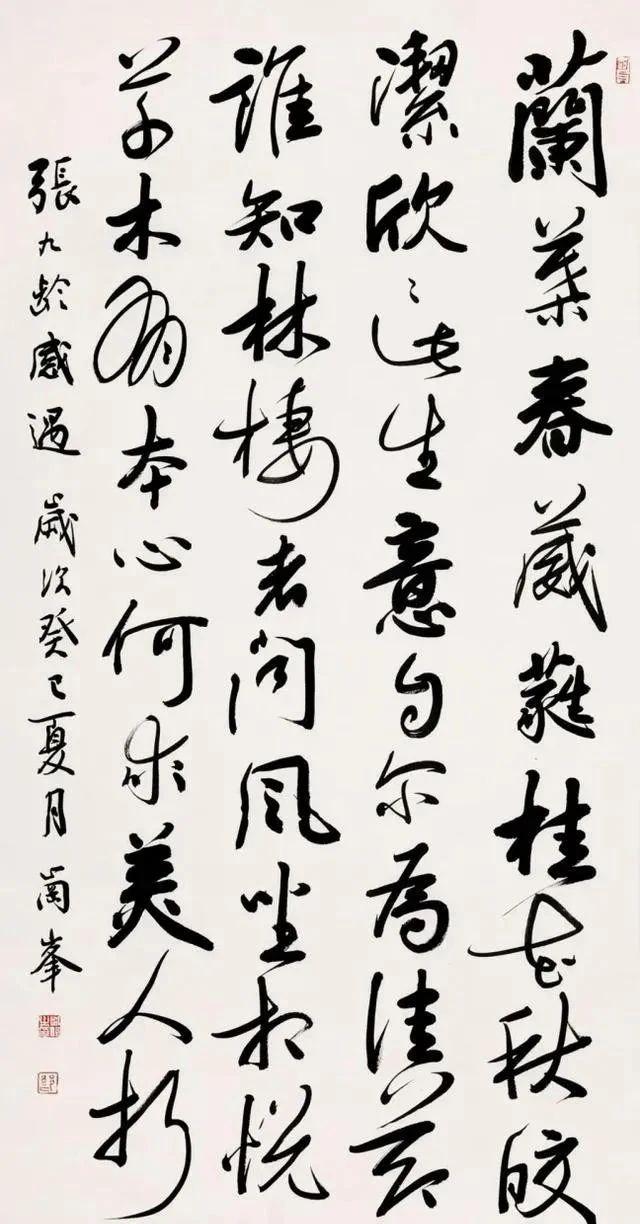 蘭葉春葳蕤桂花秋皎
潔欣〻此生意自尔為佳節
誰知林棲者問風坐相悦
草木有本心何求美人折
張九齡感遇 歲次癸巳夏月 崗峯